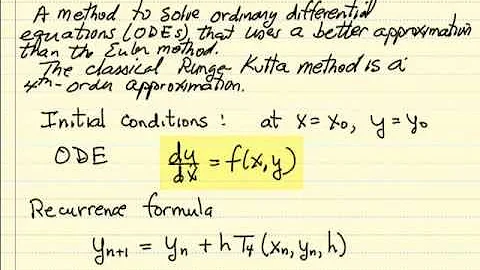 A method to solve ordinary differential
equations (ODEs), that uses a better approximation
than the Euler method.
The classical Runge-Kutta method is a
4th-order approximation.
Initial conditions : at x = x₀, y = y₀
ODE dy/dx = f(x,y)
Recurrence formula
yₙ₊₁ = yₙ + h T₄ (xₙ, yₙ, h)